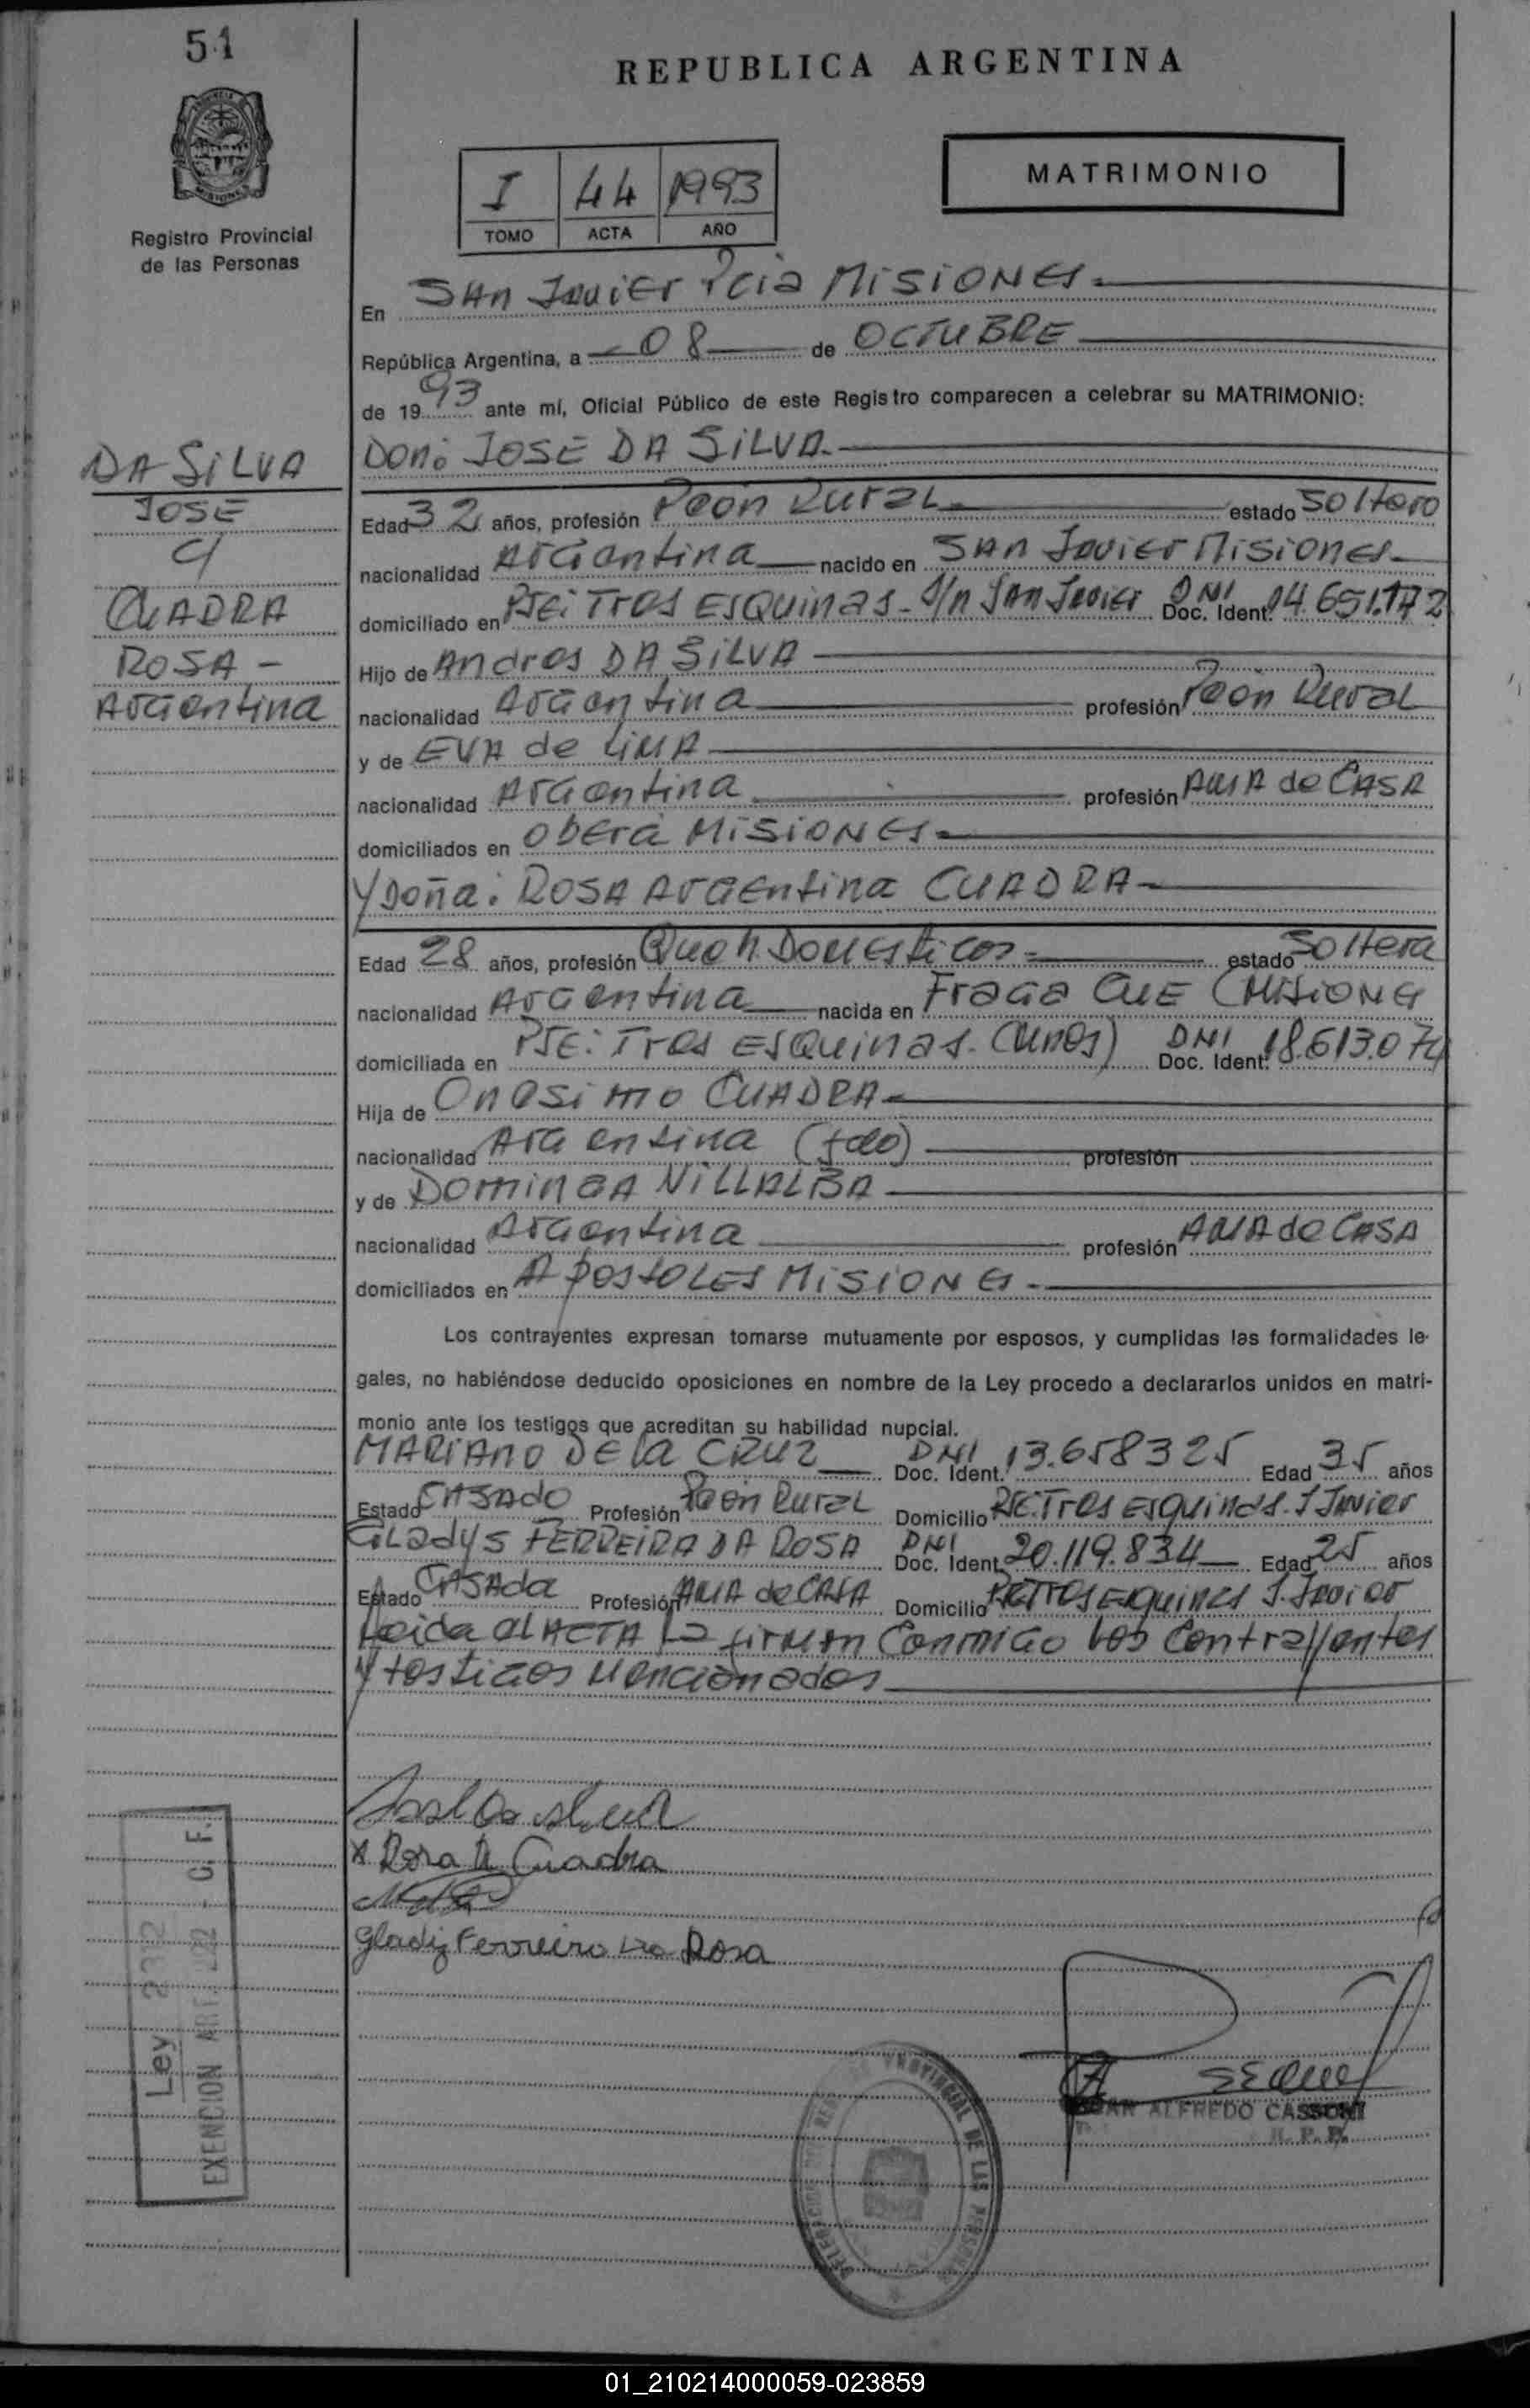 51
REPUBLICA ARGENTINA
PROVINCIA
MISIONES
Registro Provincial
de las Personas
I 44 1993
TOMO ACTA AÑO
MATRIMONIO
En SAn Javier Pcia MISIONES.
República Argentina, a 08 de OCTUBRE
de 1993 ante mí, Oficial Público de este Registro comparecen a celebrar su MATRIMONIO:
DA SILVA
JOSE
c/
CUADRA
ROSA -
Argentina
Don: JOSE DA SILVA.
Edad 32 años, profesión Peón Rural estado Soltero
nacionalidad Argentina nacido en SAn Javier Misiones
domiciliado en Pje: Tres ESQuinas. S/n SAn Javier DNI Doc. Ident. 14.651.172
Hijo de Andres DA SILVA
nacionalidad Argentina profesión Peón Rural
y de EVA de LIMA
nacionalidad Argentina profesión AMA de CASA
domiciliados en Oberá MISIONES
Y Doña: ROSA Argentina CUADRA
Edad 28 años, profesión Queh. Domesticos estado Soltera
nacionalidad Argentina nacida en Fraga CUE (MISIONES
domiciliada en Pje: Tres ESQuinas. DNI Doc. Ident. 18.613.074
Hija de Onesimo CUADRA
nacionalidad Argentina (fdo) profesión
y de Dominga VILLALBA
nacionalidad Argentina profesión AMA de CASA
domiciliados en APostoLES MISIONES.
Los contrayentes expresan tomarse mutuamente por esposos, y cumplidas las formalidades le-
gales, no habiéndose deducido oposiciones en nombre de la Ley procedo a declararlos unidos en matri-
monio ante los testigos que acreditan su habilidad nupcial.
MARIANO DE la CRUZ DNI Doc. Ident. 13.658325 Edad 35 años
Estado CASADO Profesión Peón Rural Domicilio Pje. Tres ESQuinas. S Javier
GLadys FERREIRA DA ROSA DNI Doc. Ident. 20.119.834 Edad 25 años
Estado CASAda Profesión AMA de CASA Domicilio Pje Tres Esquinas S. Javier
Leida el ACTA La firman Conmigo Los Contrayentes
y testigos Mencionados
X Rosa A Cuadra
Gladiz Ferreira Da Rosa
Ley 2312
EXENCION ART. - C. F.
ALFREDO CASSONI
R. P. P.
PROVINCIAL DE LAS PERSONAS
01_210214000059-023859